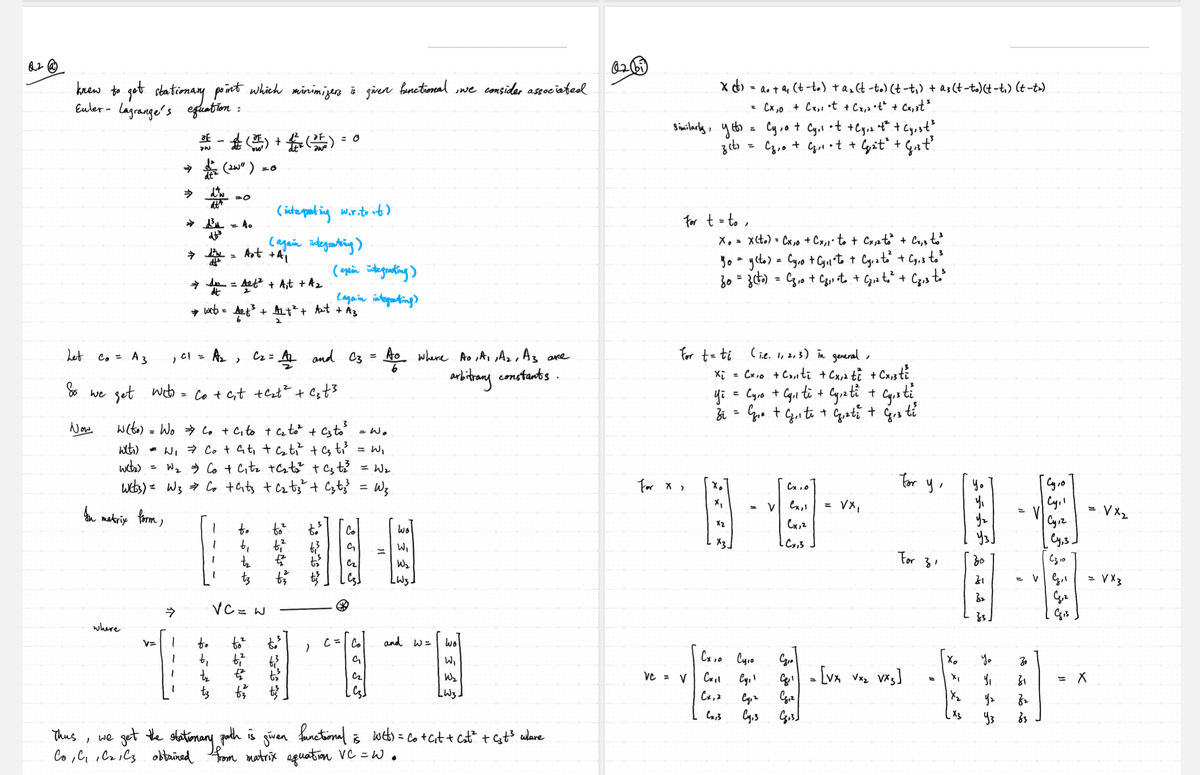 Q.2 ⓐ
know to get stationary point which minimizers is given functional , we consider associated
Euler - Lagrange's equation :
∂F/∂w - d/dt (∂F/∂w') + d²/dt² (∂F/∂w'') = 0
⇒ d²/dt² (2w'') = 0
⇒ d⁴w/dt⁴ = 0
(integrating w.r.to t)
⇒ d³w/dt³ = A₀
(again integrating)
⇒ d²w/dt² = A₀t + A₁
(again integrating)
⇒ dw/dt = A₀t²/2 + A₁t + A₂
(again integrating)
⇒ w(t) = A₀t³/6 + A₁t²/2 + A₂t + A₃
Let c₀ = A₃ , c1 = A₂ , C₂ = A₁/2 and C₃ = A₀/6 where A₀ , A₁ , A₂ , A₃ are
arbitrary constants .
So we get W(t) = C₀ + C₁t + C₂t² + C₃t³
Now W(t₀) = W₀ ⇒ C₀ + C₁t₀ + C₂t₀² + C₃t₀³ = W₀
W(t₁) = W₁ ⇒ C₀ + C₁t₁ + C₂t₁² + C₃t₁³ = W₁
W(t₂) = W₂ ⇒ C₀ + C₁t₂ + C₂t₂² + C₃t₂³ = W₂
W(t₃) = W₃ ⇒ C₀ + C₁t₃ + C₂t₃² + C₃t₃³ = W₃
In matrix form,
[ 1 t₀ t₀² t₀³ ] [ C₀ ] [ W₀ ]
1 t₁ t₁² t₁³ C₁ = W₁
1 t₂ t₂² t₂³ C₂ W₂
1 t₃ t₃² t₃³ C₃ W₃
⇒ VC = W —— ⊛
where
V = [ 1 t₀ t₀² t₀³ ] , C = [ C₀ ] and W = [ W₀ ]
1 t₁ t₁² t₁³ C₁ W₁
1 t₂ t₂² t₂³ C₂ W₂
1 t₃ t₃² t₃³ C₃ W₃
Thus , we get the stationary path is given functional is W(t) = C₀ + C₁t + C₂t² + C₃t³ where
C₀ , C₁ , C₂ , C₃ obtained from matrix equation VC = W .
Q2 (bi)
X(t) = a₀ + a₁ (t - t₀) + a₂ (t - t₀) (t - t₁) + a₃ (t - t₀)(t - t₁) (t - t₂)
= Cx,₀ + Cx,₁ · t + Cx,₂ · t² + Cx,₃t³
Similarly , y(t) = Cy,₀ + Cy,₁ · t + Cy,₂ · t² + Cy,₃t³
z(t) = Cz,₀ + Cz,₁ · t + Cz,₂t² + Cz,₃t³
For t = t₀ ,
X₀ = X(t₀) = Cx,₀ + Cx,₁ · t₀ + Cx,₂t₀² + Cx,₃t₀³
y₀ = y(t₀) = Cy,₀ + Cy,₁ · t₀ + Cy,₂t₀² + Cy,₃t₀³
z₀ = z(t₀) = Cz,₀ + Cz,₁t₀ + Cz,₂t₀² + Cz,₃t₀³
For t = ti (i.e. 1, 2, 3) in general ,
Xi = Cx,₀ + Cx,₁ti + Cx,₂ti² + Cx,₃ti³
yi = Cy,₀ + Cy,₁ti + Cy,₂ti² + Cy,₃ti³
zi = Cz,₀ + Cz,₁ti + Cz,₂ti² + Cz,₃ti³
For x ,
[ X₀ ] [ Cx,₀ ]
X₁ = V Cx,₁ = VX₁
X₂ Cx,₂
X₃ Cx,₃
For y ,
[ y₀ ] [ Cy,₀ ]
y₁ = V Cy,₁ = VX₂
y₂ Cy,₂
y₃ Cy,₃
For z ,
[ z₀ ] [ Cz,₀ ]
z₁ = V Cz,₁ = VX₃
z₂ Cz,₂
z₃ Cz,₃
VC = V [ Cx,₀ Cy,₀ Cz,₀ ] = [VX₁ VX₂ VX₃] = [ X₀ y₀ z₀ ] = X
Cx,₁ Cy,₁ Cz,₁ X₁ y₁ z₁
Cx,₂ Cy,₂ Cz,₂ X₂ y₂ z₂
Cx,₃ Cy,₃ Cz,₃ X₃ y₃ z₃